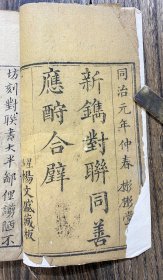 同治元年仲春
新鐫對聯同善
應酧合璧
楊文盛藏板
坊刻對聯書大半鄙俚謭陋不